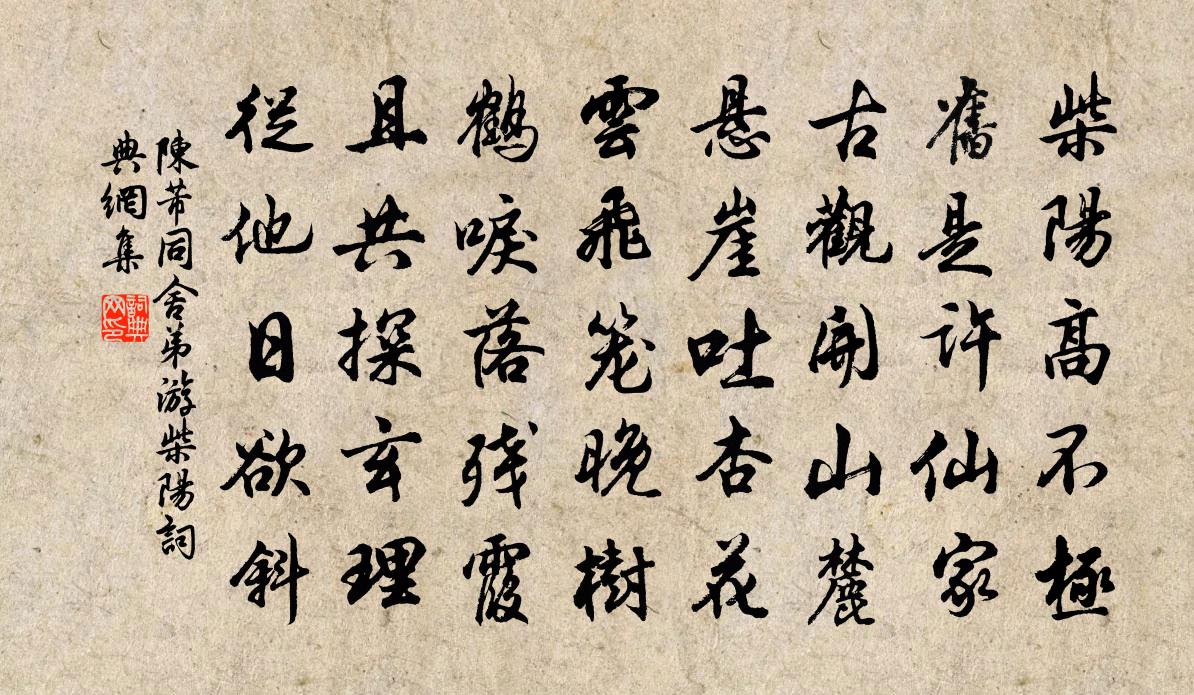 柴陽高不極
舊是許仙家
古觀開山麓
懸崖吐杏花
雲飛笼晚樹
鶴唳落残霞
且共探玄理
從他日欲斜
陳芾同舍弟游柴陽詞
典網集
詞典
网印